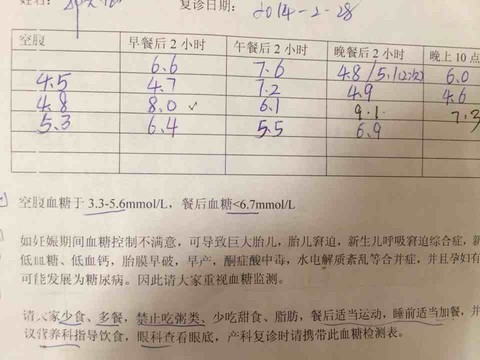 姓名： 复诊日期： 2014-2-28
空腹 早餐后 2 小时 午餐后 2 小时 晚餐后 2 小时 晚上 10 点
6.6 7.6 4.8 / 5.1 6.0
4.5 4.7 7.2 4.9 4.6
4.8 8.0 ✓ 6.1 9.1 7.3
5.3 6.4 5.5 6.9
空腹血糖于 3.3-5.6mmol/L，餐后血糖<6.7mmol/L
如妊娠期间血糖控制不满意，可导致巨大胎儿，胎儿窘迫，新生儿呼吸窘迫综合症，新
低血糖、低血钙，胎膜早破，早产，酮症酸中毒，水电解质紊乱等合并症，并且孕妇有
可能发展为糖尿病。因此请大家重视血糖监测。
请大家少食、多餐，禁止吃粥类、少吃甜食、脂肪，餐后适当运动，睡前适当加餐，并
议营养科指导饮食，眼科查看眼底，产科复诊时请携带此血糖检测表。